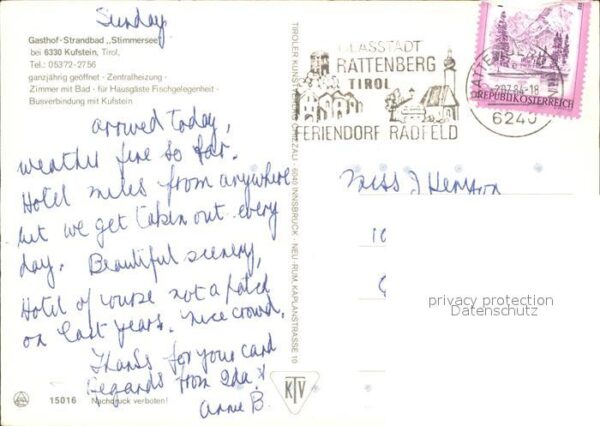 Sunday
Gasthof-Strandbad „Stimmersee"
bei 6330 Kufstein, Tirol,
Tel.: 05372-2756
ganzjährig geöffnet - Zentralheizung -
Zimmer mit Bad - für Hausgäste Fischgelegenheit -
Busverbindung mit Kufstein
arrived today,
weather fine so far.
Hotel miles from anywhere
but we get taken out every
day. Beautiful scenery,
Hotel of course not a patch
on last years. nice crowd.
Thanks for your card
Regards from Ida
Annie B.
15016 Nachdruck verboten!
TIROLER KUNSTVERLAG CHIZZALI · 6040 INNSBRUCK - NEU-RUM, KAPLANSTRASSE 10
KTV
GLASSTADT
RATTENBERG
TIROL
FERIENDORF RADFELD
RATTENBERG
84-18
6240
REPUBLIK ÖSTERREICH
Miss J
10
privacy protection
Datenschutz